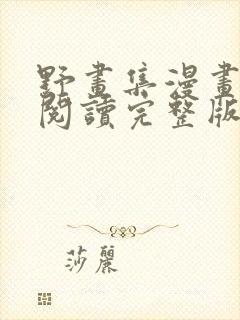 野畫集漫畫
閱讀完整版
莎麗